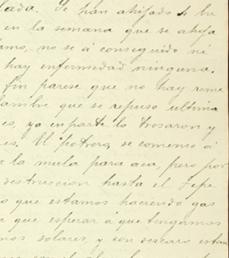 lada. Se han ahijado
en la semana que se ahija
amo, no se á conseguido ni
hay enfermedad ninguna.
fin parese que no hay reme
ambre que se repuso ultima
es, ya en parte lo trosaron y
es. El potrero, se comenso á
la mula para aca, pero por
destruccion hasta el Jefe
o que estamos haciendo gas
a que esperar á que tengamos
nos solares, y son